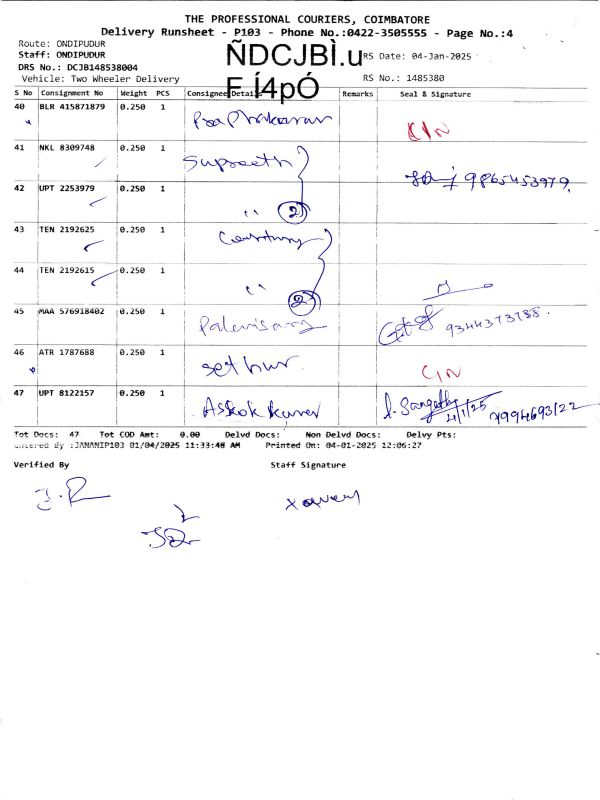 THE PROFESSIONAL COURIERS, COIMBATORE
Delivery Runsheet - P103 - Phone No.:0422-3505555 - Page No.:4
Route: ONDIPUDUR
Staff: ONDIPUDUR
ÑDCJBÌ.u
RS Date: 04-Jan-2025
DRS No.: DCJB148538004
Vehicle: Two Wheeler Delivery
F Í4pÓ
RS No.: 1485380
S No Consignment No Weight PCS Consignee Details Remarks Seal & Signature
40 BLR 415871879 0.250 1
C/N
41 NKL 8309748 0.250 1 Supreeth
42 UPT 2253979 0.250 1 " 2 9865453979.
43 TEN 2192625 0.250 1
44 TEN 2192615 0.250 1 " 2
45 MAA 576918402 0.250 1 9344373788.
46 ATR 1787688 0.250 1 C/N
47 UPT 8122157 0.250 1 Ashok kumar 4/1/25
Tot Docs: 47 Tot COD Amt: 0.00 Delvd Docs: Non Delvd Docs: Delvy Pts:
Entered By :JANANIP103 01/04/2025 11:33:48 AM Printed On: 04-01-2025 12:06:27
Verified By Staff Signature